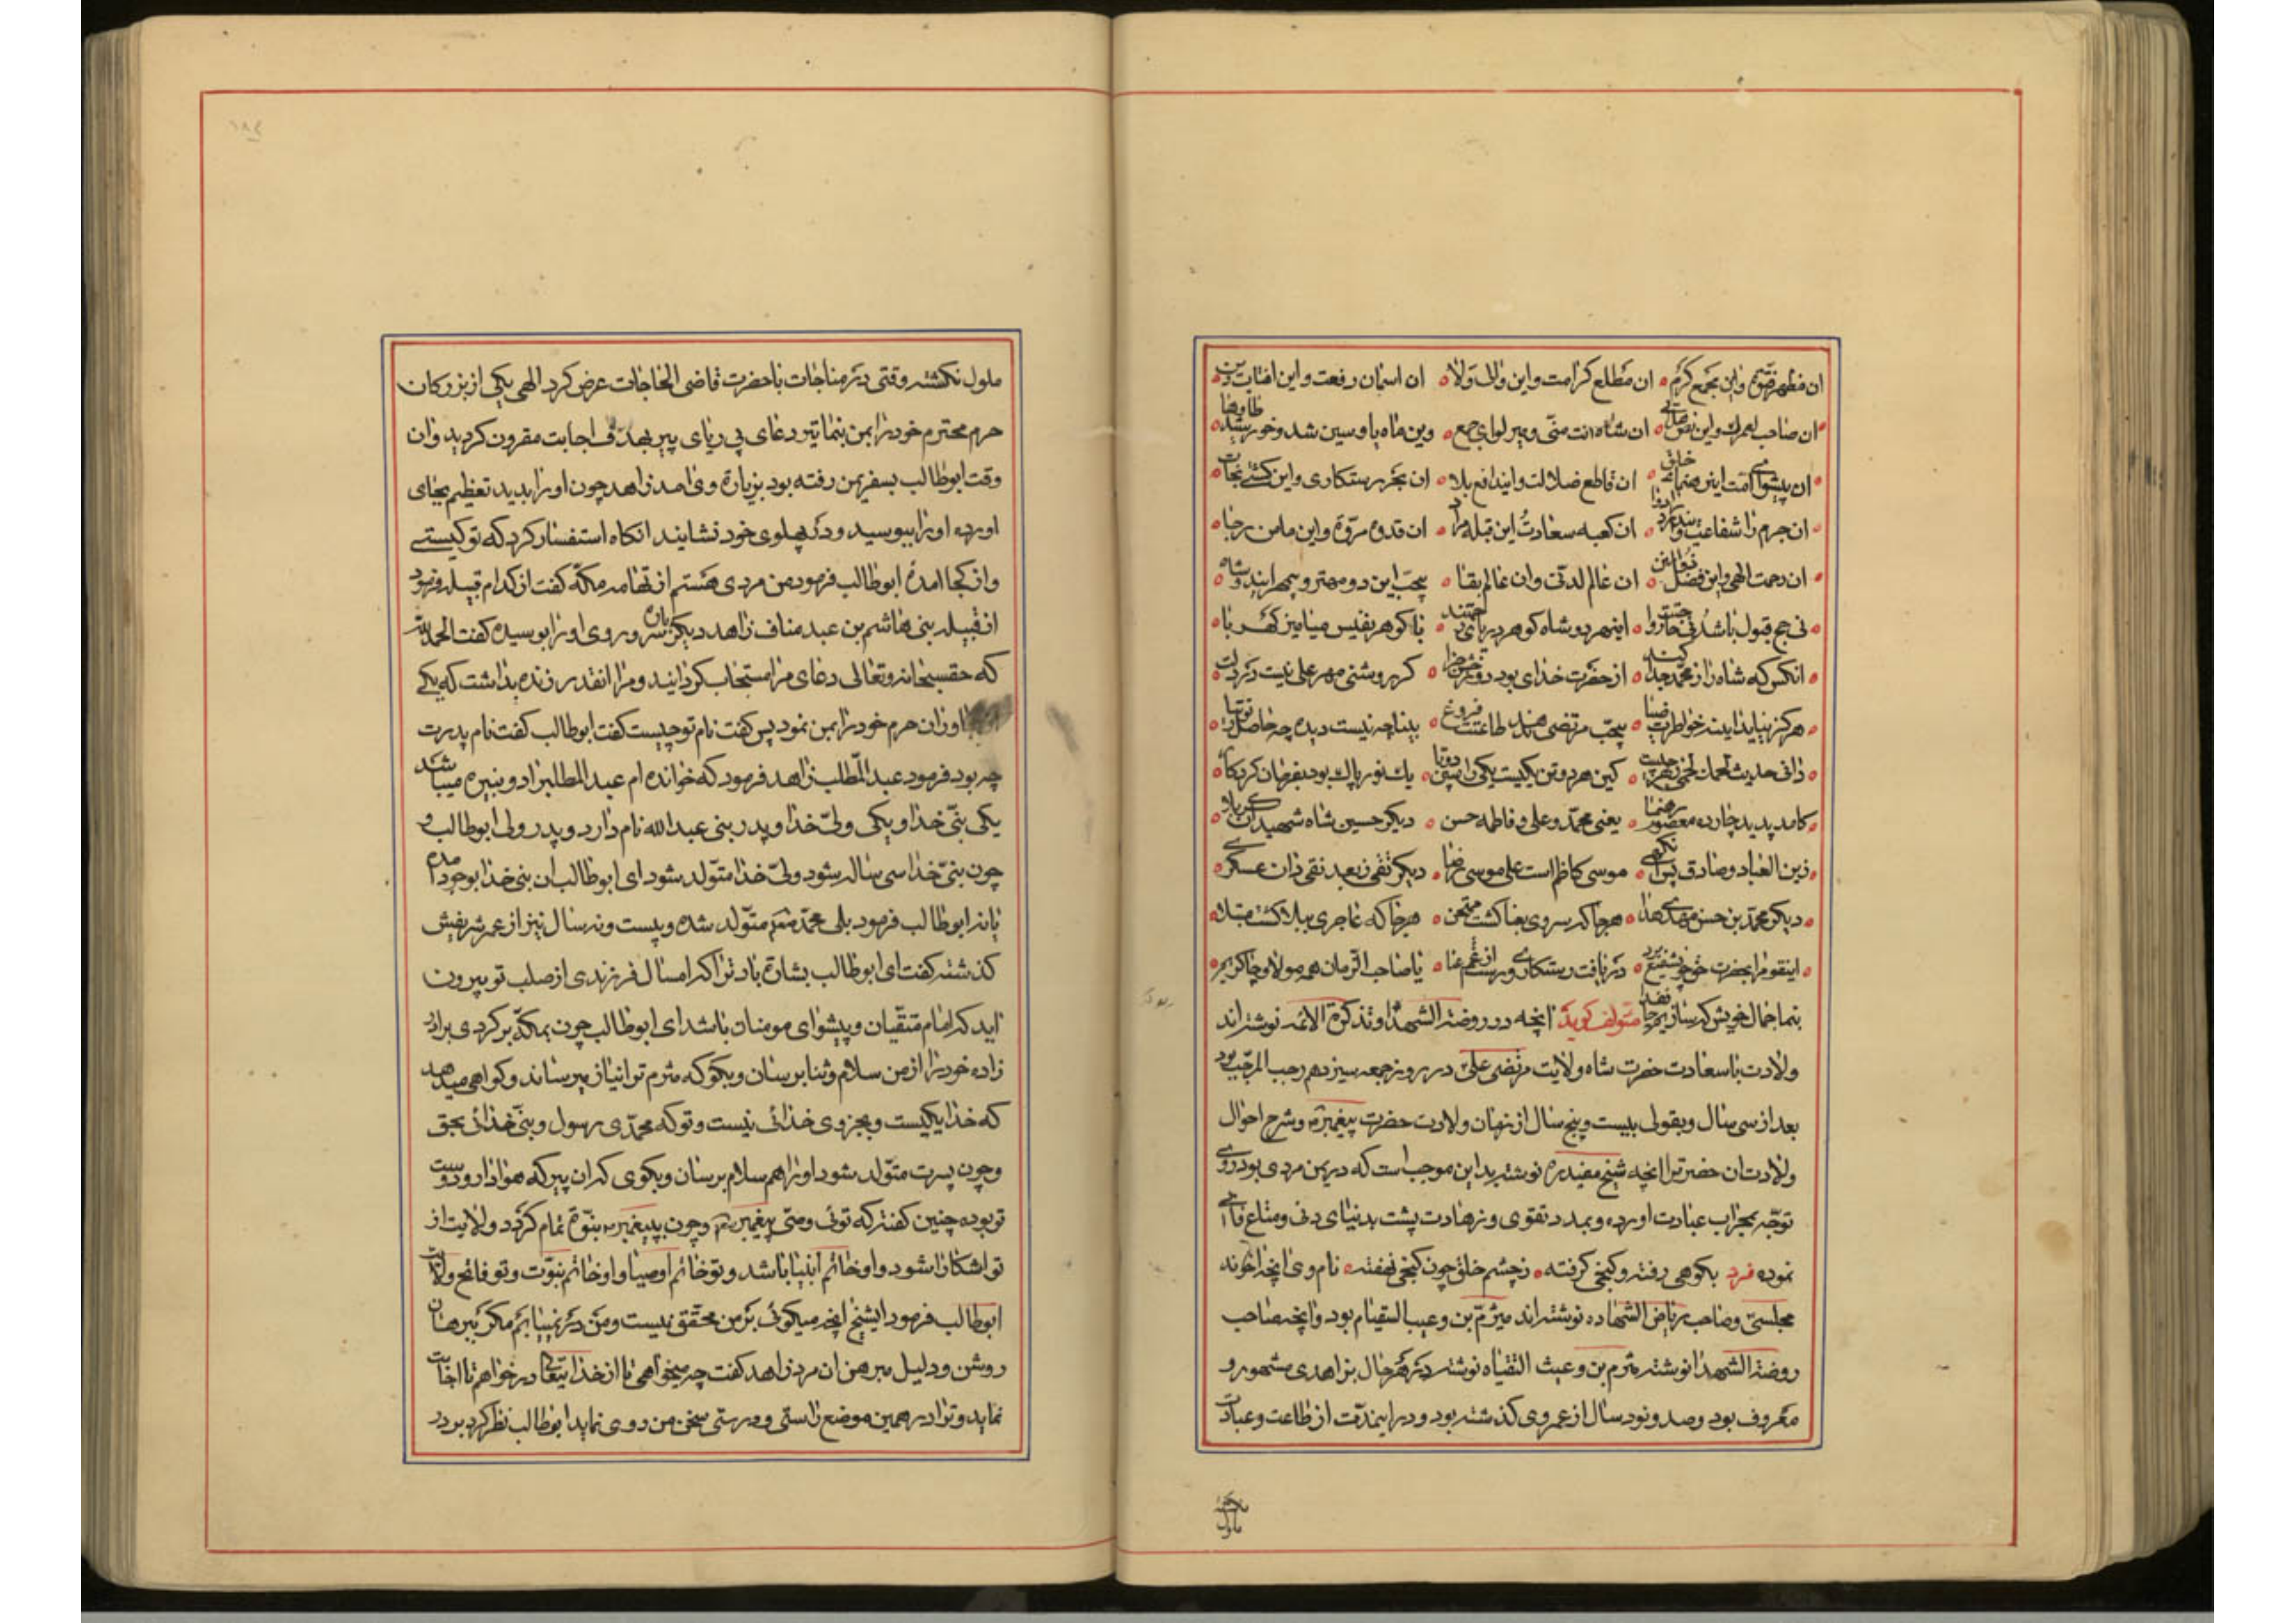 ان مظهر فتوّ واین مجمع کرم ان مطلع کرامت واین والی ولا ان اسمان رفعت واین افتاب دین
ان صاحب لعمرك واین نص ان شاه انت منّی ومیر لوای جمع وین ماه یا وسین شد وخورشید طاوها
ان پیشوای امت این رهنمای خلق ان قاطع ضلالت واین دافع بلا ان بحر رستکاری واین کشتی نجات
ان جرم را شفاعت و ان کعبه سعادت این قبله مراد ان قدوه مروّة واین مامن رجا
ان رحمت الهی واین فضل ذوالمن ان عالم لدنّی وان عالم بقا بیحبّ این دو مهتر وبیمهر ایندو شاه
نی حج قبول باشد نی اینهر دو شاه کوهر دریای با کوهر نفیس میامیز کهربا
انکس که شاه را ز محمد جدا کند از حضرت خدای بود روز کر روشنی مهر علی نیست در دلت
هرکز نیاید اینه خواطرت ضیا بیحبّ مرتضی طاعتت فروغ بینا چه نیست دیده چه حاصل ز توتیا
دانی حدیث لحمك لحمی کین هر دو تن یکیست یکی را مبین دوتا یك نور پاك بود بفرمان کردکار
کامد پدید چارده معصوم رهنما یعنی محمّد وعلی وفاطمه حسن دیکر حسین شاه شهیدان کربلا
زین العباد وصادق موسی کاظم است علی موسی رضا دیکر تقی زبعد نقی دان عسکری
دیکر محمّد بن حسن مهدی هدا هرجا که سروی بعنا کشت ممتحن هرجا که عاجزی ببلا کشت مبتلا
اینقوم را بحضرت حق چون شفیع برد دریافت رستکاری ورست از غم عنا یا صاحب الزمان همه مولا وچاکریم
بنما جمال خویش که سازیم جا فدا متولف کوید انچه در روضة الشهدا وتذکرة الائمه نوشته اند
ولادت با سعادت حضرت شاه ولایت مرتضی علی در روز جمعه سیزدهم رجب المرجّب بود
بعد از سی سال وبقولی بیست وپنج سال از زمان ولادت حضرت پیغمبر وشرح احوال
ولادت ان حضرترا انچه شیخ مفید ره نوشته بداین موجب است که در یمن مردی بود روی
توجّه بمحراب عبادت اورده وبمدد تقوی وزهادت پشت بدنیای دنی ومتاع فانی
نموده فرد بکوهی رفته وکنجی کرفته زچشم خلق چون کنجی نهفته نام وی انچه اخوند
مجلسی وصاحب ریاض الشهاده نوشته اند میثرم بن وعیب السقیام بود وانچه صاحب
روضة الشهدا نوشته مثرم بن وعیث الثقیاه نوشته در هرحال بزاهدی مشهور و
معروف بود وصد ونود سال از عمر وی کذشته بود ودر اینمدّت از طاعت وعبادت
ملول نکشته وقتی در مناجات با حضرت قاضی الحاجات عرض کرد الهی یکی از بزرکان
حرم محترم خود را بمن بنما تیر دعای بی ریای پیر بهدف اجابت مقرون کردید وان
وقت ابوطالب بسفر یمن رفته بود بزیارة وی امد زاهد چون او را بدید تعظیم بجای
اورده او را ببوسید ودر پهلوی خود نشانید انکاه استفسار کرد که تو کیستے
واز کجا امدهٔ ابوطالب فرمود من مردی هستم از تهامه مکّه کفت از کدام قبیله فرمود
از قبیله بنی هاشم بن عبد مناف زاهد دیکرباره سر وروی او را بوسیده کفت الحمدلله
که حقسبحانه وتعالی دعای مرا مستجاب کردانید ومرا انقدر زنده بداشت که یکے
او زان حرم خود را بمن نمود پس کفت نام تو چیست کفت ابوطالب کفت نام پدرت
چه بود فرمود عبدالمّطلب زاهد فرمود که خوانده ام عبد المطلبرا دو نبیره میباشد
یکی بنیّ خدا ویکی ولیّ خدا وپدر بنی عبدالله نام دارد وپدر ولی ابوطالب و
چون بنیّ خدا سی ساله شود ولیّ خدا متوّلد شود ای ابوطالب ان بنی خدا بوجود امده
یا نه ابوطالب فرمود بلی محمّد متوّلد شده وبیست ونه سال نیز از عمر شریفش
کذشته کفت ای ابوطالب بشارة باد ترا که امسال فرزندی از صلب تو بیرون
اید که امام متقّیان وپیشوای مومنان باشد ای ابوطالب چون بمکّه برکردی برادر
زاده خود را از من سلام وثنا برسان وبکو که مثرم ترا نیاز میرساند وکواهی میدهد
که خدا یکیست وبجز وی خدائی نیست وتو که محمّدی رسول وبنیّ خدائی بحق
وچون پسرت متوّلد شود او را هم سلام برسان وبکوی که ان پیر که هوادار ودوست
تو بوده چنین کفته که توئی وصّی پیغمبر وچون بپیغمبر نبوّة تمام کردد ولایت از
تو اشکارا شود واو خاتم انبیا باشد وتو خاتم اوصیا واو خاتم نبوّت وتو فاتح ولایت
ابوطالب فرمود ایشیخ انچه میکوئی بر من محقّق نیست ومن در نمییابم مکر ببرهان
روشن ودلیل مبرهن ان مرد زاهد کفت چه میخواهی تا از خدا یتعالی درخواهم تا اجابت
نماید وترا در همین موضع راستی ودرستی سخن من روی نماید ابوطالب نظر کرد بر در